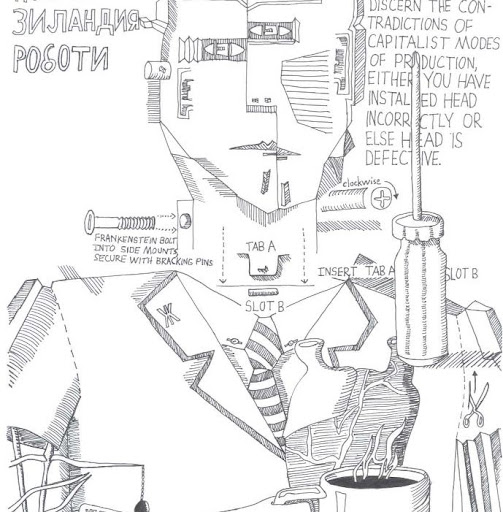 ЗИЛАНДИЯ
РОБОТИ
DISCERN THE CON-
TRADICTIONS OF
CAPITALIST MODES
OF PRODUCTION,
EITHER YOU HAVE
INSTALLED HEAD
INCORRECTLY OR
ELSE HEAD IS
DEFECTIVE.
clockwise
FRANKENSTEIN BOLT
INTO SIDE MOUNTS
SECURE WITH BRACKING PINS
TAB A
INSERT TAB A SLOT B
SLOT B
Ж